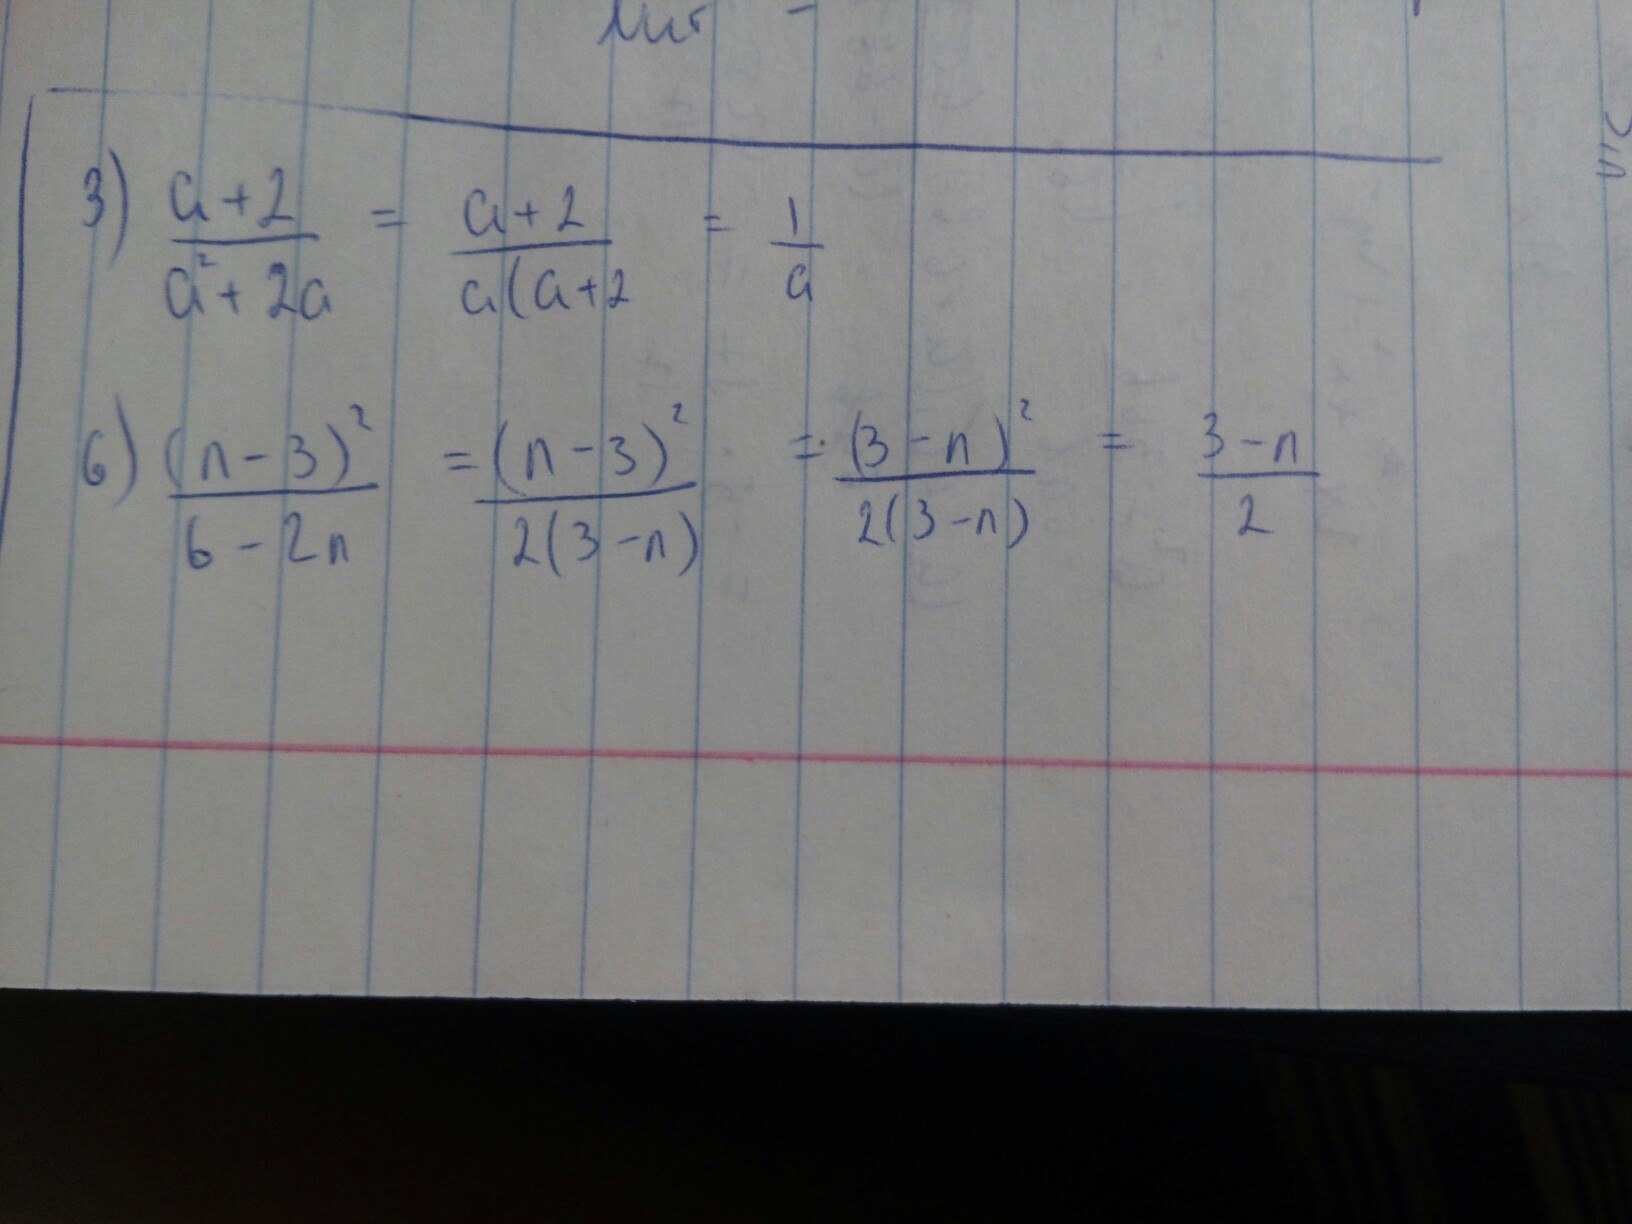 3) (a+2)/(a²+2a) = (a+2)/(a(a+2) = 1/a
6) (n-3)²/(6-2n) = (n-3)²/(2(3-n)) = (3-n)²/(2(3-n)) = (3-n)/2